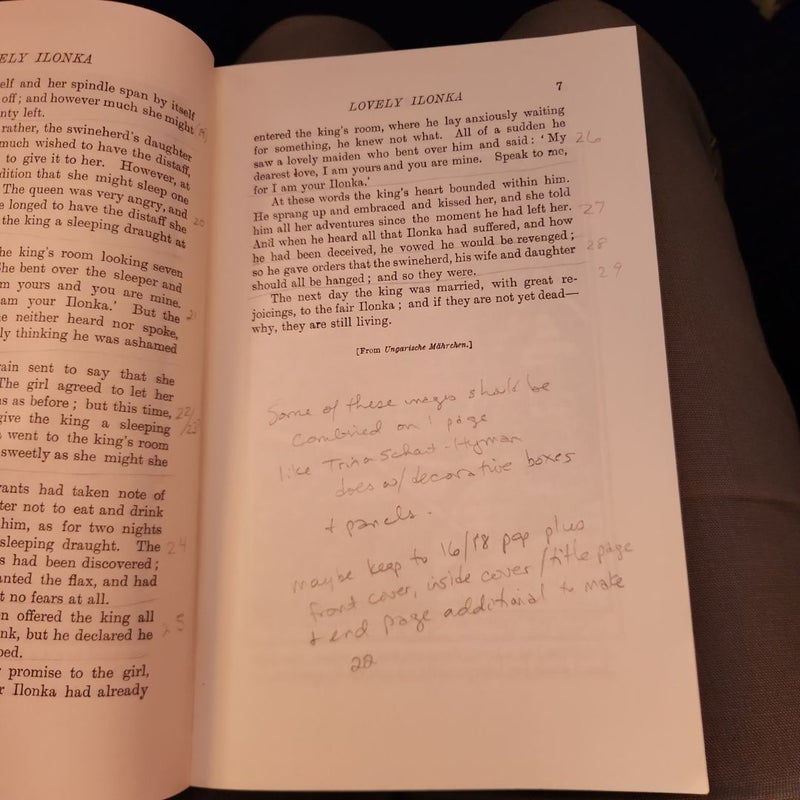 ELY ILONKA
elf and her spindle span by itself
off; and however much she might
nty left.
rather, the swineherd's daughter
much wished to have the distaff,
to give it to her. However, at
dition that she might sleep one
The queen was very angry, and
e longed to have the distaff she
the king a sleeping draught at
20
he king's room looking seven
She bent over the sleeper and
m yours and you are mine.
am your Ilonka.' But the
e neither heard nor spoke,
ly thinking he was ashamed
ain sent to say that she
The girl agreed to let her
s as before; but this time,
22/
give the king a sleeping
/23
went to the king's room
sweetly as she might she
ants had taken note of
ter not to eat and drink
him, as for two nights
sleeping draught. The
24
s had been discovered;
anted the flax, and had
t no fears at all.
n offered the king all
25
nk, but he declared he
ped.
r promise to the girl,
r Ilonka had already
LOVELY ILONKA
7
entered the king's room, where he lay anxiously waiting
for something, he knew not what. All of a sudden he
saw a lovely maiden who bent over him and said: 'My
26
dearest love, I am yours and you are mine. Speak to me,
for I am your Ilonka.'
At these words the king's heart bounded within him.
He sprang up and embraced and kissed her, and she told
him all her adventures since the moment he had left her.
27
And when he heard all that Ilonka had suffered, and how
he had been deceived, he vowed he would be revenged;
28
so he gave orders that the swineherd, his wife and daughter
should all be hanged; and so they were.
29
The next day the king was married, with great re-
joicings, to the fair Ilonka; and if they are not yet dead—
why, they are still living.
[From Ungarische Mährchen.]
Some of these images should be
combined on 1 page
like Trina Schart-Hyman
does w/decorative boxes
+ panels.
maybe keep to 16/18 pgp plus
front cover, inside cover/title page
+ end page additional to make
22